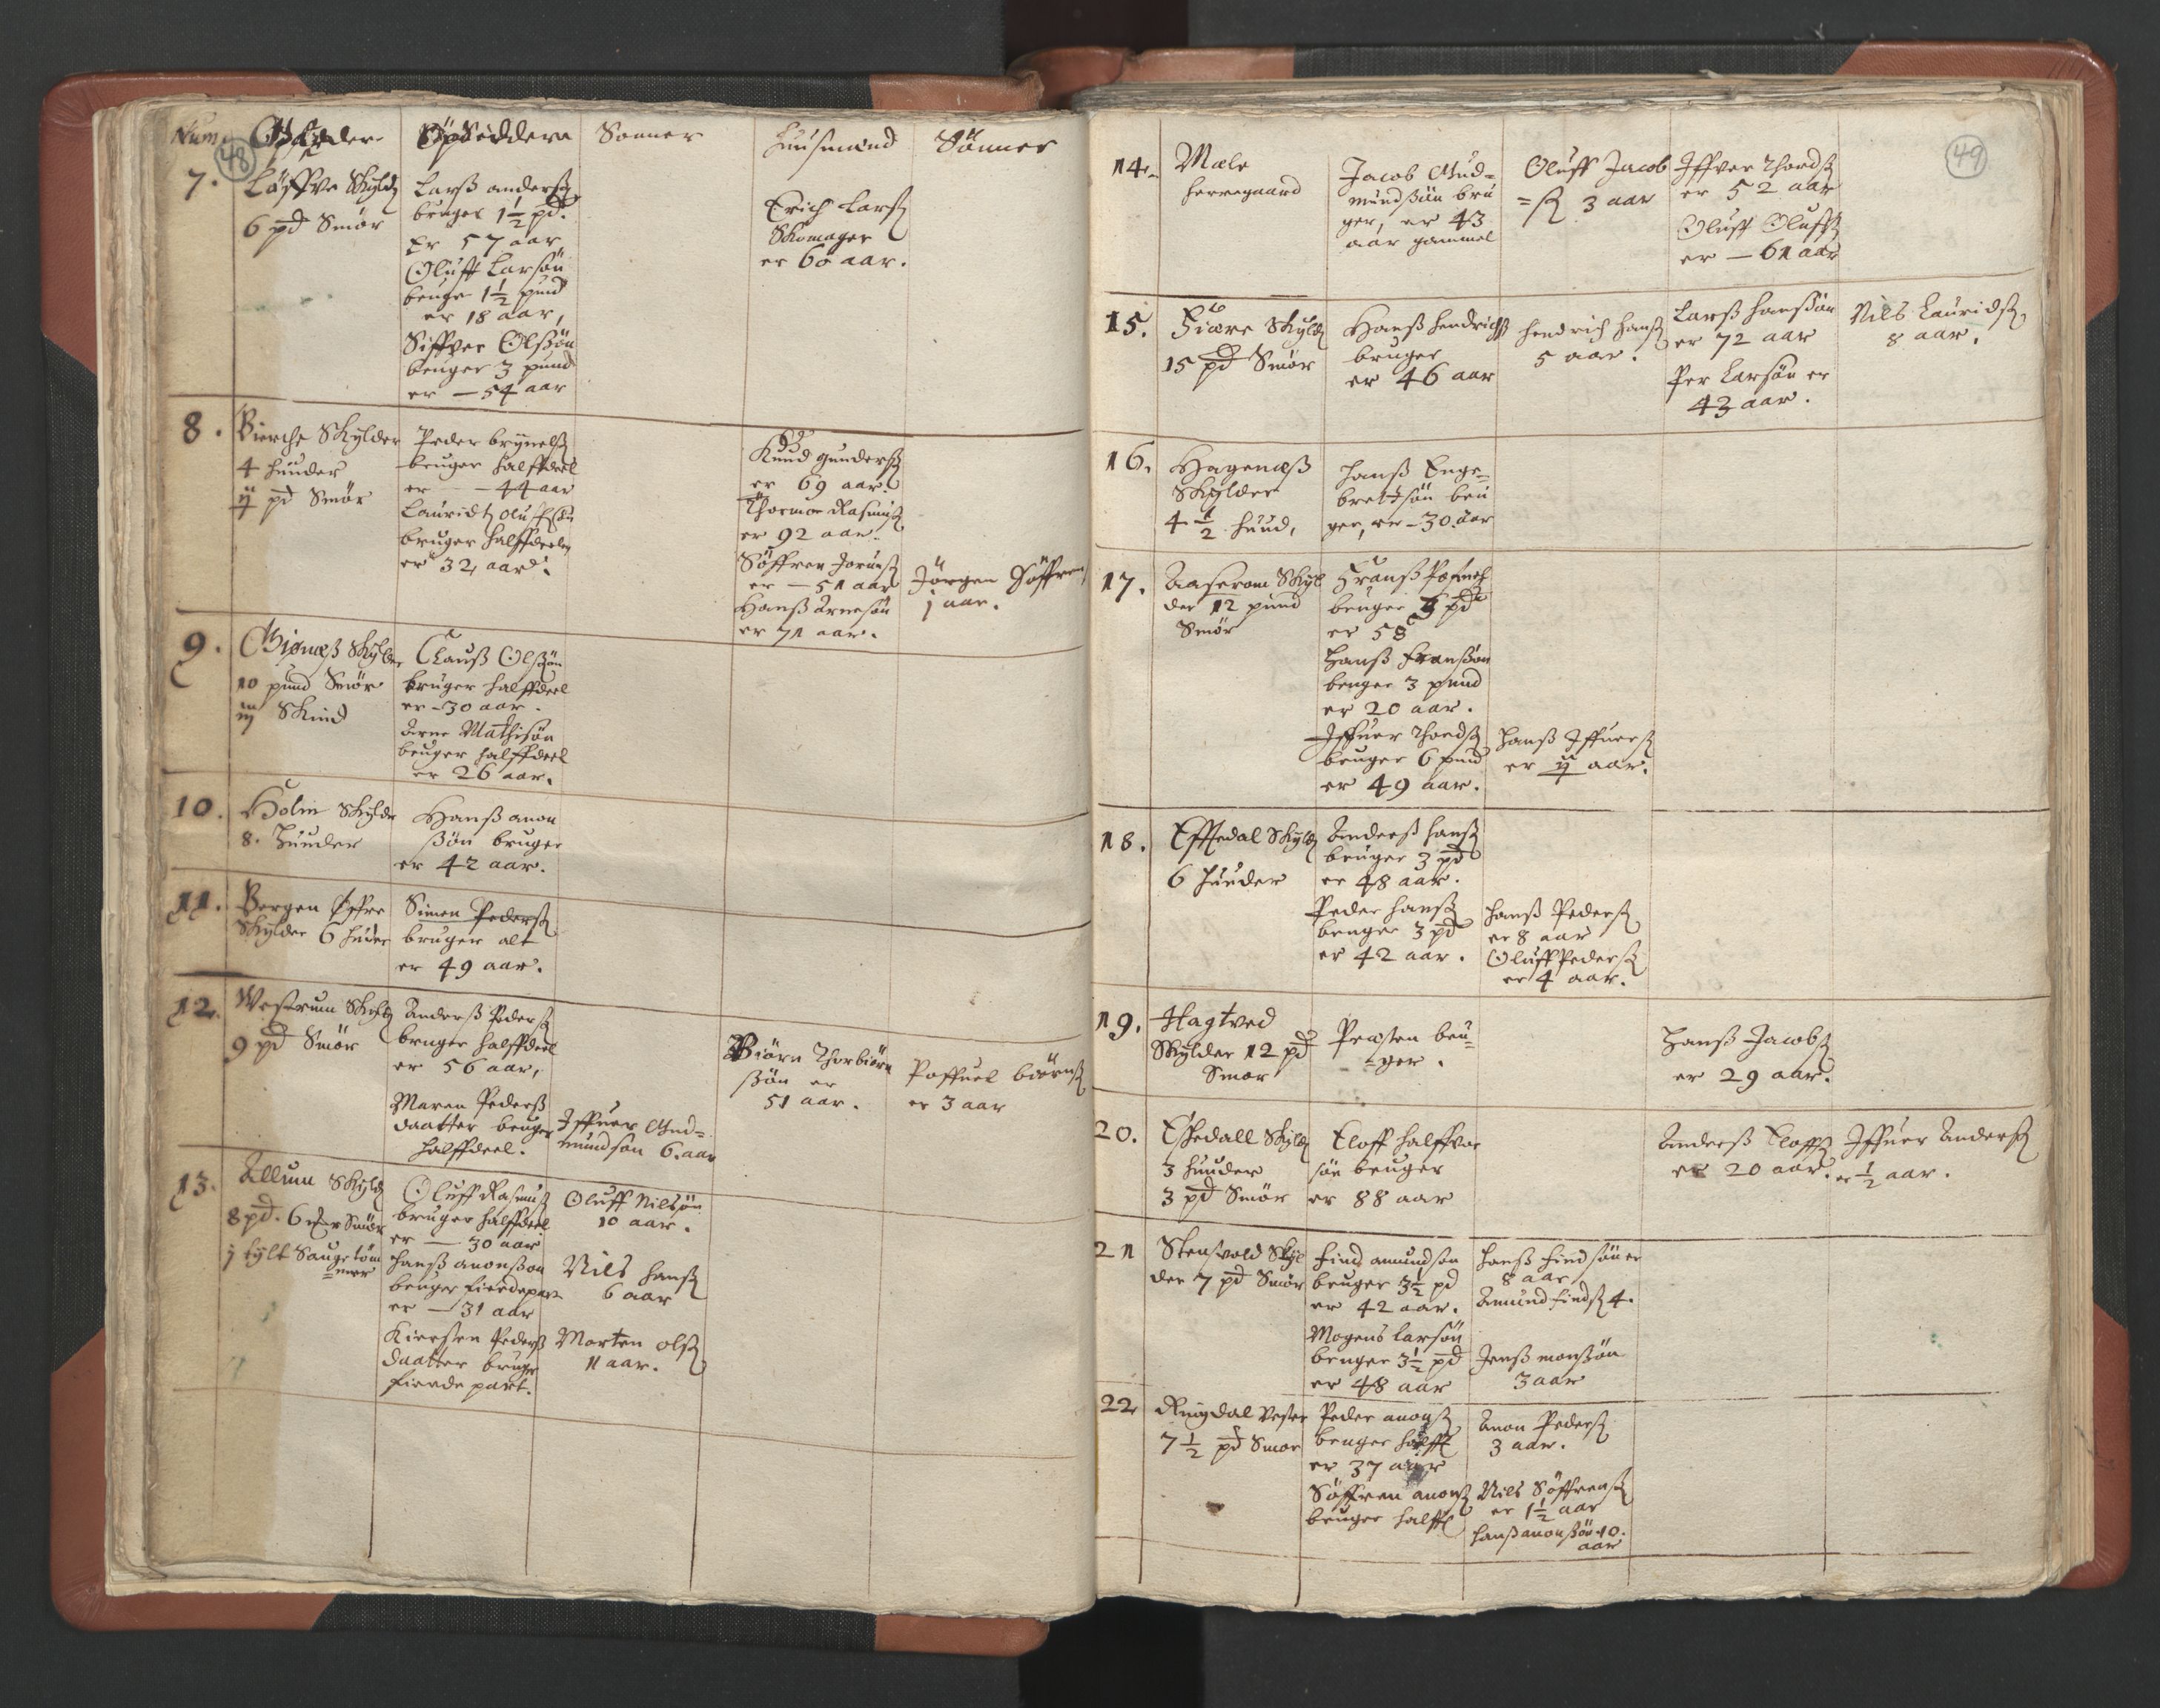 48
Num. Gaarder Opsiddere Sønner Huusmend Sønner
7. Løffve Skyld
6 pd Smør
Larß anderß
bruger 1 1/2 pd.
Er 57 aar,
Oluff Larsøn
bruger 1 1/2 pund
er 18 aar,
Siffver Olßøn
bruger 3 pund
er — 54 aar
Erich Larß
Skomager
er 60 aar.
8. Bierche Skylder
4 huuder
ij pd Smør
Peder brynelß
bruger halffdeel
er — 44 aar
Lauridtz Oluffßøn
bruger halffdeelen
er 32 aar.
Knud gunderß
er 69 aar.
Thormoe Rasmuß
er 92 aar.
Søffren Jorunß
er — 51 aar
Hanß Arneßøn
er 71 aar.
Jørgen Søffrenß
j aar.
9. Skylder
10 pund Smør
iij Skind
Clauß Olßøn
bruger halffdeel
er — 30 aar.
Arne Mathisøn
bruger halffdeel
er 26 aar.
10. Holm Skylder
8. Huuder
Hanß anon
ßøn bruger
er 42 aar.
11. Bergen Øffre
Skylder 6 huder
Simen Pederß
bruger alt
er 49 aar.
12. Westrum Skyld
9 pd Smør
Anderß Pederß
bruger halffdeel
er 56 aar,
Maren Pederß
daatter bruger
halffdeel.
Iffuer Gud=
mundsøn 6. aar
Biørn Thorbiørn
ßøn er
51 aar.
Poffuel biørnß
er 3 aar
13. Allum Skyld
8 pd. 6 mr Smør
j tylt Saugtøm
=mer
Oluff Rasmuß
bruger halffdeel
er — 30 aar
hanß anonßøn
bruger fierdepart
er — 31 aar
Kiersten Pederß
daatter bruger
fierde part.
Oluff Nilsøn
10 aar.
Nils hanß
6 aar
Morten Olß
11 aar.
49
14. Mæle
herregaard
Jacob Gud=
mundßøn bru
ger, er 43
aar gammel
Oluff Jacob
=ß 3 aar
Iffver Thordß
er 52 aar
Oluff Oluffß
er — 61 aar
15. Fiære Skyld
15 pd Smør
Hanß hendrichß
bruger
er 46 aar
hendrich hanß
5 aar.
Larß hanßøn
er 72 aar
Per Larsøn er
43 aar.
Nils Lauridß
8 aar.
16. Hagenæß
Skylder
4 1/2 huud,
hanß Enge=
brettsøn bru
ger, er — 30. aar
17. Aaserom Skyl
der 12 pund
Smør
Franß
bruger 3 pd
er 58
Hanß Franßøn
bruger 3 pund
er 20 aar.
Iffuer Thordß
bruger 6 pund
er 49 aar.
Hanß Iffuerß
er ij aar.
18. Efftedal Skyld
6 huuder
Anderß hanß
bruger 3 pd
er 48 aar.
Peder hanß
bruger 3 pd
er 42 aar.
hanß Pederß
er 8 aar
Oluff Pederß
er 4 aar.
19. Hagtved
Skylder 12 pd
Smør
Præsten bru=
=ger.
Hanß Jacobß
er 29 aar.
20. Eskedall Skyld
3 huuder
3 pd Smør
Eloff halffvor
søn bruger
er 88 aar
Anderß Eloffß
er 20 aar.
Iffuer Anderß
er 1/2 aar.
21 Stensvold Skyl
der 7 pd Smør
Find amundsøn
bruger 3 1/2 pd
er 42 aar.
Mogens Larsøn
bruger 3 1/2 pd
er 48 aar
hanß findsøn er
8 aar
Amund findß 4.
Jenß monßøn
3 aar
22 Ringdal Vester
7 1/2 pd Smør
Peder anonß
bruger halfft
er 37 aar
Søffren anonß
bruger halfft
Anon Pederß
3 aar.
Nils Søffrenß
er 1 1/2 aar
hanß anonßøn 10.
aar